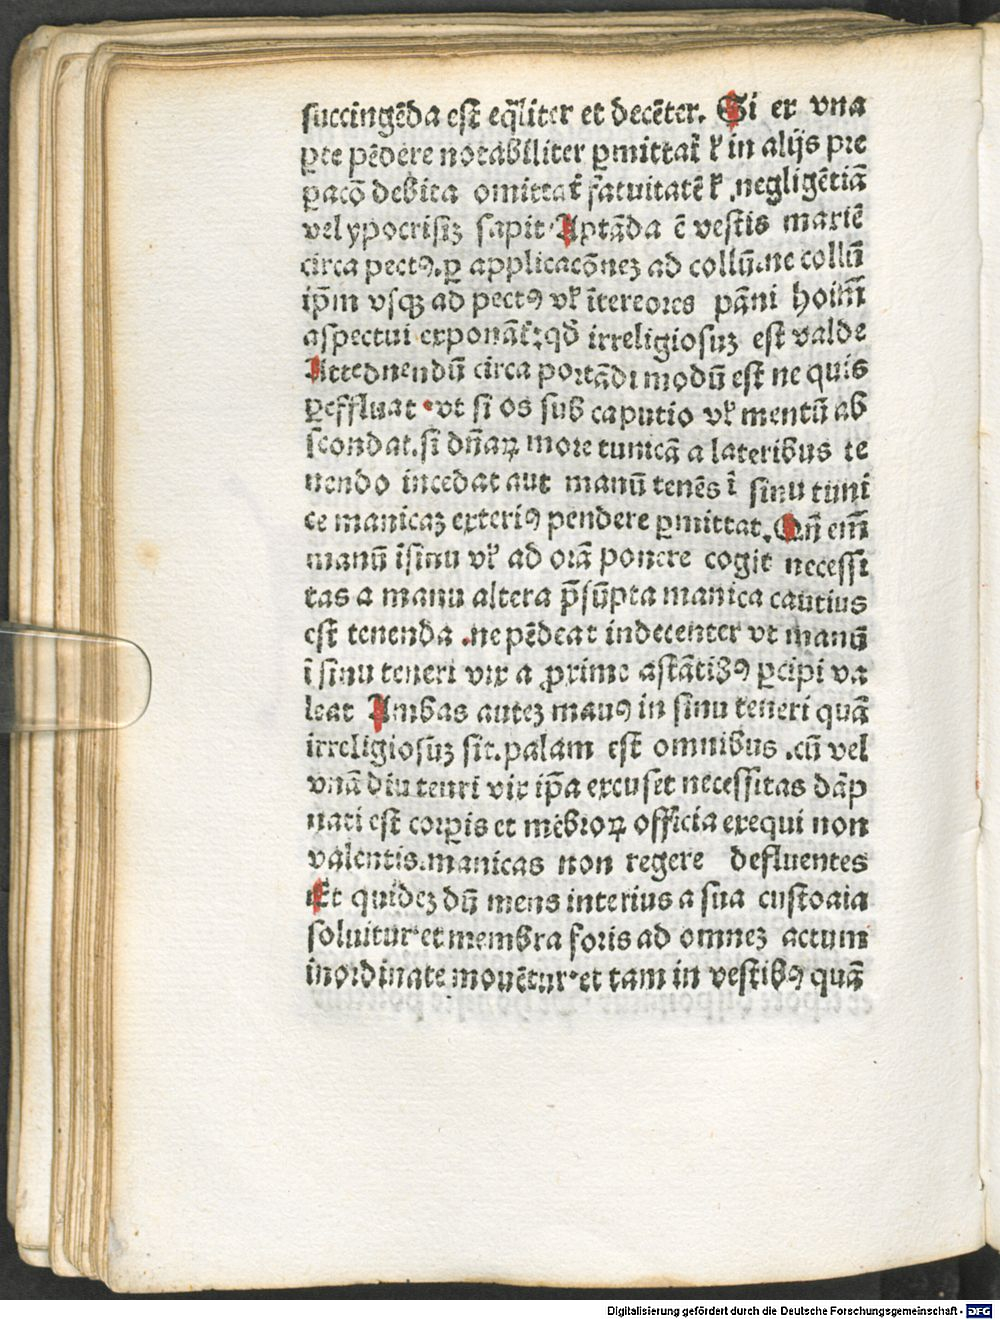 succingēda est eq̄liter et decēter. Si ex vna
ꝑte pēdere notabiliter ꝑmittat᷑ ꝉ in alijs pre
ꝑacōӡ debita omittat᷑ fatuitatē ꝉ .negligētiā
vel ypocrisiӡ sapit. Aptāda ē vestis mariē
circa pectꝰ.ꝑ applicacōneӡ ad collū.ne collū
ip̄m vsqӡ ad pectꝰ vꝉ ītereores pāni hoīm
aspectui exponāt᷑:qd̄ irreligiosuӡ est valde
Attednendū circa portādi modū est ne quis
ꝑeffluat .vt si os sub caputio vꝉ mentū ab
scondat.si dn̄aꝝ more tunicā a lateribus te
nendo incedat aut manū tenēs ī sinu tuni
ce manicaӡ exteriꝰ pendere ꝑmittat. Qn̄ em̄
manū īsinu vꝉ ad orā ponere cogit necessi
tas a manu altera p̄sūpta manica cautius
est tenenda .ne pēdeat indecenter vt manū
ī sinu teneri vix a ꝓxime astātibꝰ ꝑcipi va
leat Ambas auteӡ mauꝰ in sinu teneri quā
irreligiosuӡ sit.palam est omnibus .cū vel
vnā diu tenri vix ip̄a excuset necessitas dāp
nati est corꝑis et mēbroꝝ officia exequi non
valentis.manicas non regere defluentes
Et quideӡ dū mens interius a sua custoaia
soluitur.et membra foris ad omneӡ actum
inordinate mouētur.et tam in vestibꝰ quā
Digitalisierung gefördert durch die Deutsche Forschungsgemeinschaft - DFG